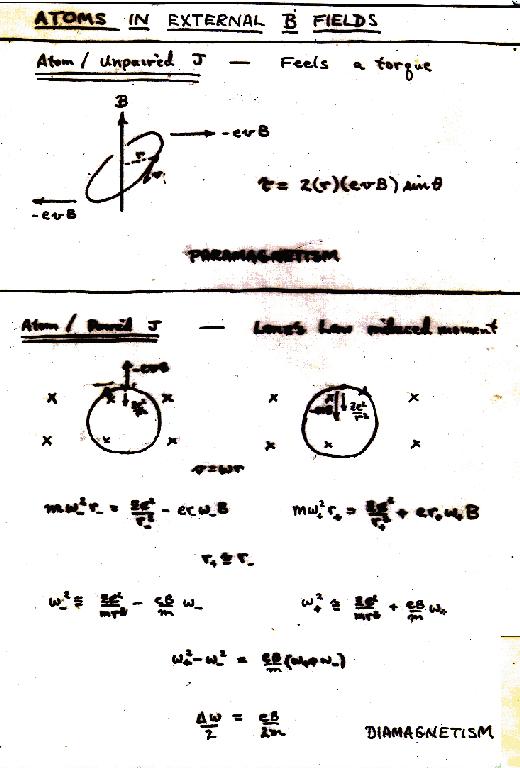 ATOMS IN EXTERNAL B FIELDS
Atom / Unpaired J — Feels a torque
B
-evB
r
v
-evB
τ = 2(r)(evB) sin θ
PARAMAGNETISM
Atom / Paired J — Lenz's Law induced moment
-evB
x x x x x
x x x x x
v = ωr
mω₋²r₋ = Ze²/r₋² - er₋ω₋B mω₊²r₊ = Ze²/r₊² + er₊ω₊B
r₊ ≅ r₋
ω₋² ≅ Ze²/mr³ - eB/m ω₋ ω₊² ≅ Ze²/mr³ + eB/m ω₊
ω₊² - ω₋² = eB/m (ω₊+ω₋)
Δω/2 = eB/2m
DIAMAGNETISM